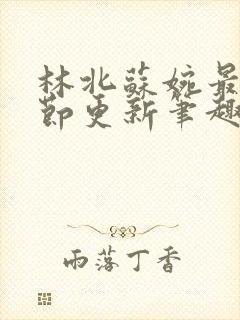 林北蘇婉最
節更新筆趣
雨落丁香